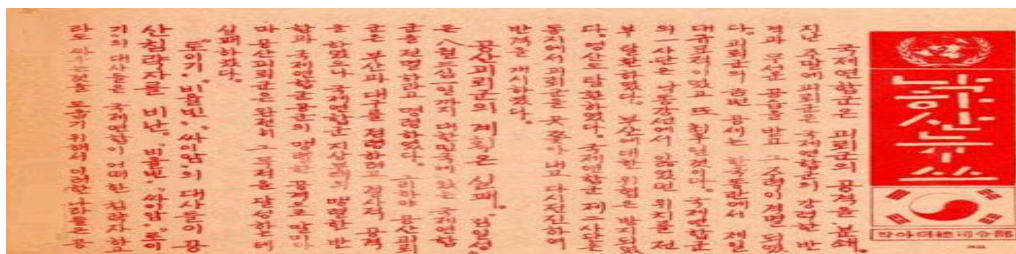 낙하산뉴쓰
국제연합군은 괴뢰군의 공격을 분쇄.
진주 방면에 괴뢰군은 국제연합군의 강력한 반
격과 무서운 공습을 받고 그 소멸이 격멸 되었
다. 괴뢰군의 금번 공세는 한국동란에서 제일
대규모적이었고 또 침략적인 것이다. 국제연합군
의 사단은 낙동강선에서 잃었던 위치를 전
부 탈환하였다. 부산에 대한 위협은 방지되었
다. 영산도 탈환하였다. 국제연합군 제二사단은
동지에서 괴뢰군을 쫓아내고 다시 전진하여
반격을 개시하였다.
공산괴뢰군의 계획은 실패. 김일성
은 八월 십五일까지 대한민국에 있는 국제연합
군을 전멸하라고 명령하였다. 그리하야 공산괴뢰
군은 부산과 대구를 점령하려고 결사적 공격
을 하였으나 국제연합군 지상부대의 맹렬한 반
격과 국제연합공군의 맹렬한 공격으로 말미암
아 공산괴뢰군은 단연히 그 목적을 달성한데
실패하였다.
토이기, 비율빈, 싸이암의 대사들이 공
산침략자를 비난. 비율빈, 싸이암, 토이
기의 대사들은 국제연합이 어떠한 침략자하고
라도 싸우는 것을 돕기 위해서 이러한 나라들은 공